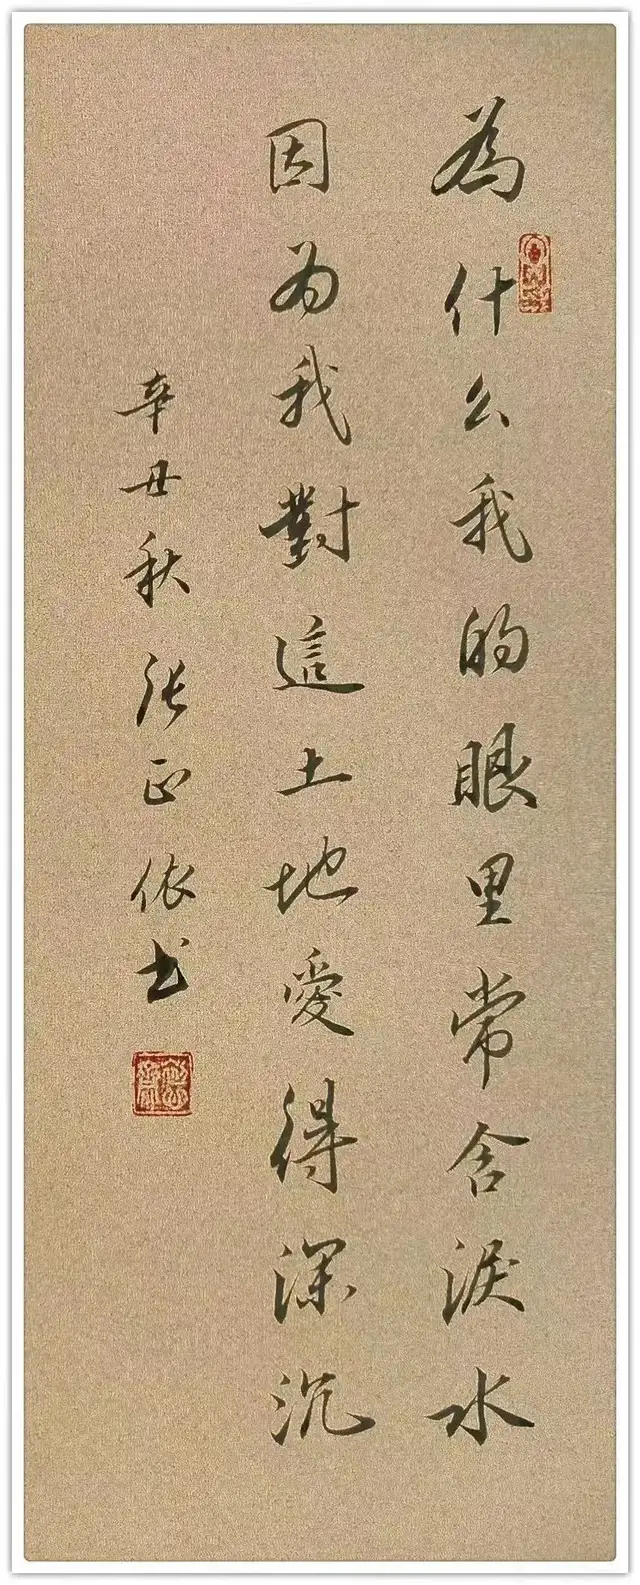 為什么我的眼里常含淚水
因为我對這土地愛得深沉
辛丑秋張正依书